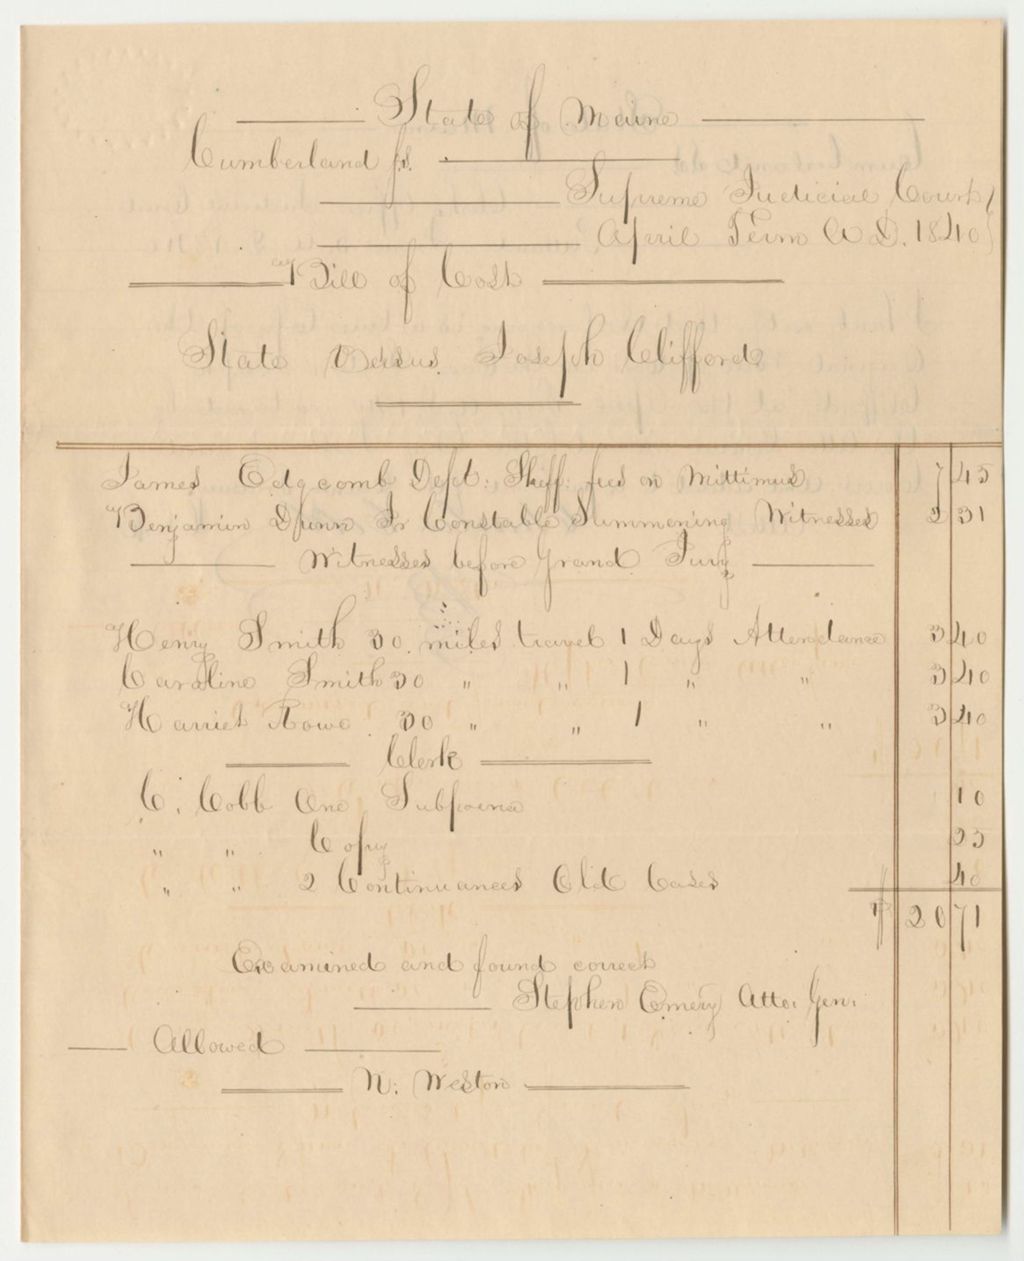 State of Maine
Cumberland ss.
Supreme Judicial Court
April Term A D. 1840
Bill of Cost
State versus Joseph Clifford
James Edgcomb Dept: Sheff: fees on Mittimus 7 45
Benjamin Dunn Jr Constable Summoning Witnesses 2 31
Witnesses before Grand Jury
Henry Smith 30 miles travel 1 Days Attendance 3 40
Caroline Smith 30 " " 1 " " 3 40
Harriet Rowe 30 " " 1 " " 3 40
Clerk
C. Cobb One Subpoena 10
" " Copy 25
" " 2 Continuances Old Cases 40
$ 20 71
Examined and found correct
Stephen Emery Atto: Gen:
Allowed
N: Weston